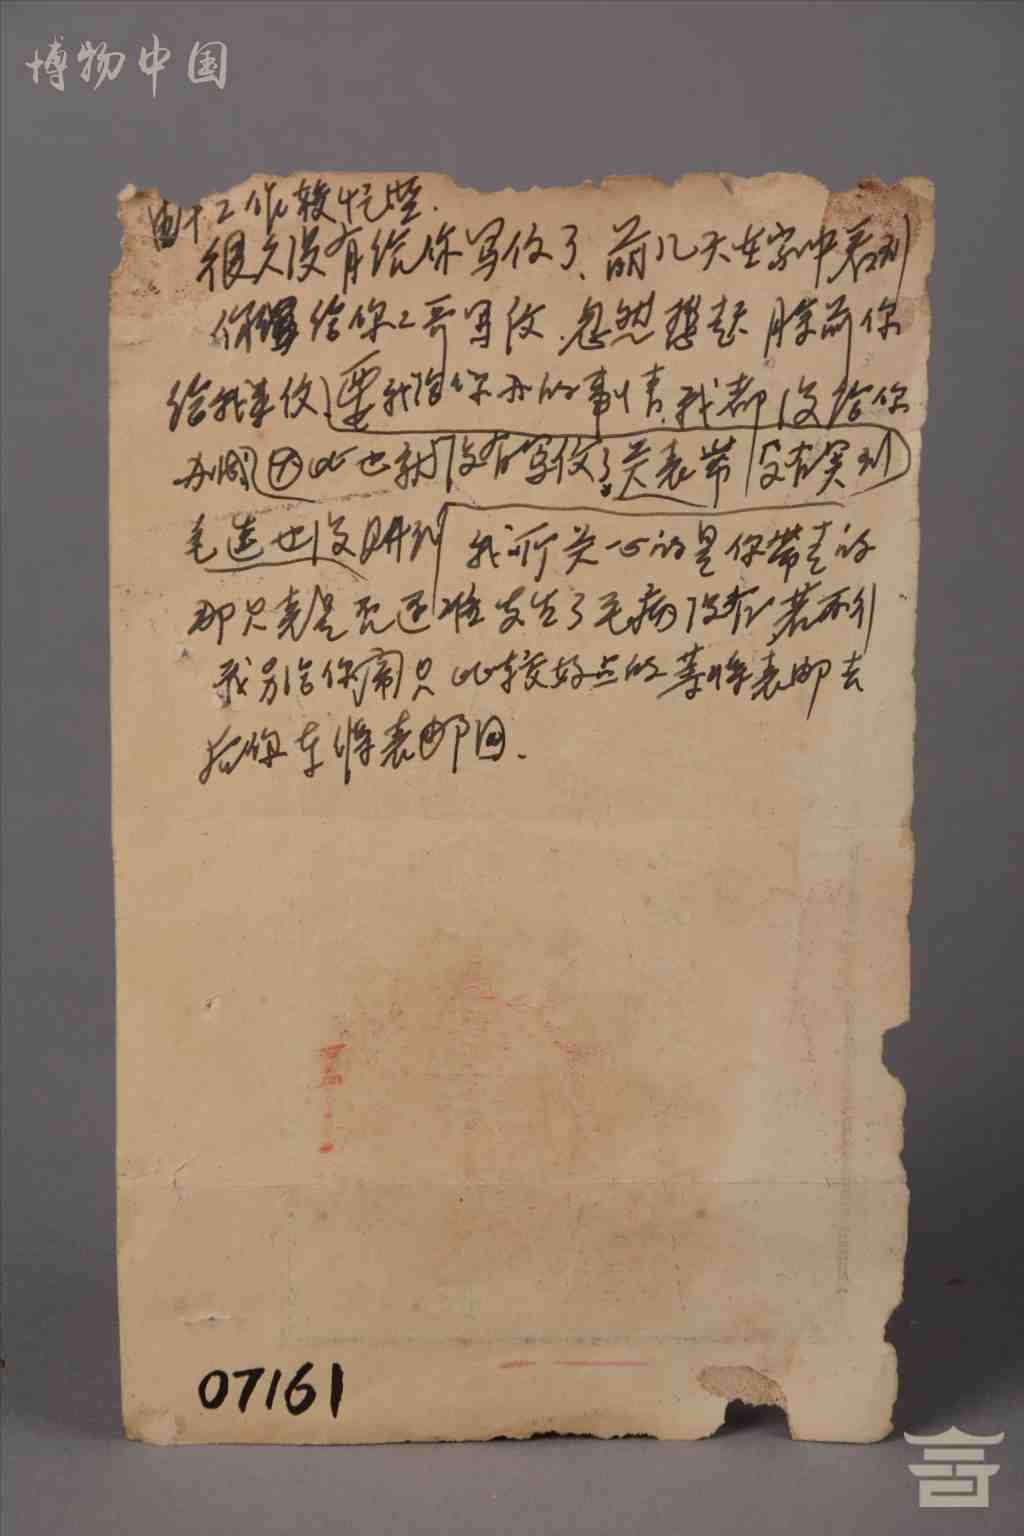 博物中国
由于工作较忙些.
很久没有给你写信了、前几天在家中看到
你给你二哥写信.忽然想起月余前你
给我来信、要我给你办的事情、我都没给你
办。因此也就没有写信了。关表带没有买到
毛选也没购到 我所关心的是你带走的
那只表是否还准发生了毛病没有、若不行
我另给你寄只比较好点的 等将表邮去
后你在将表邮回.
07161